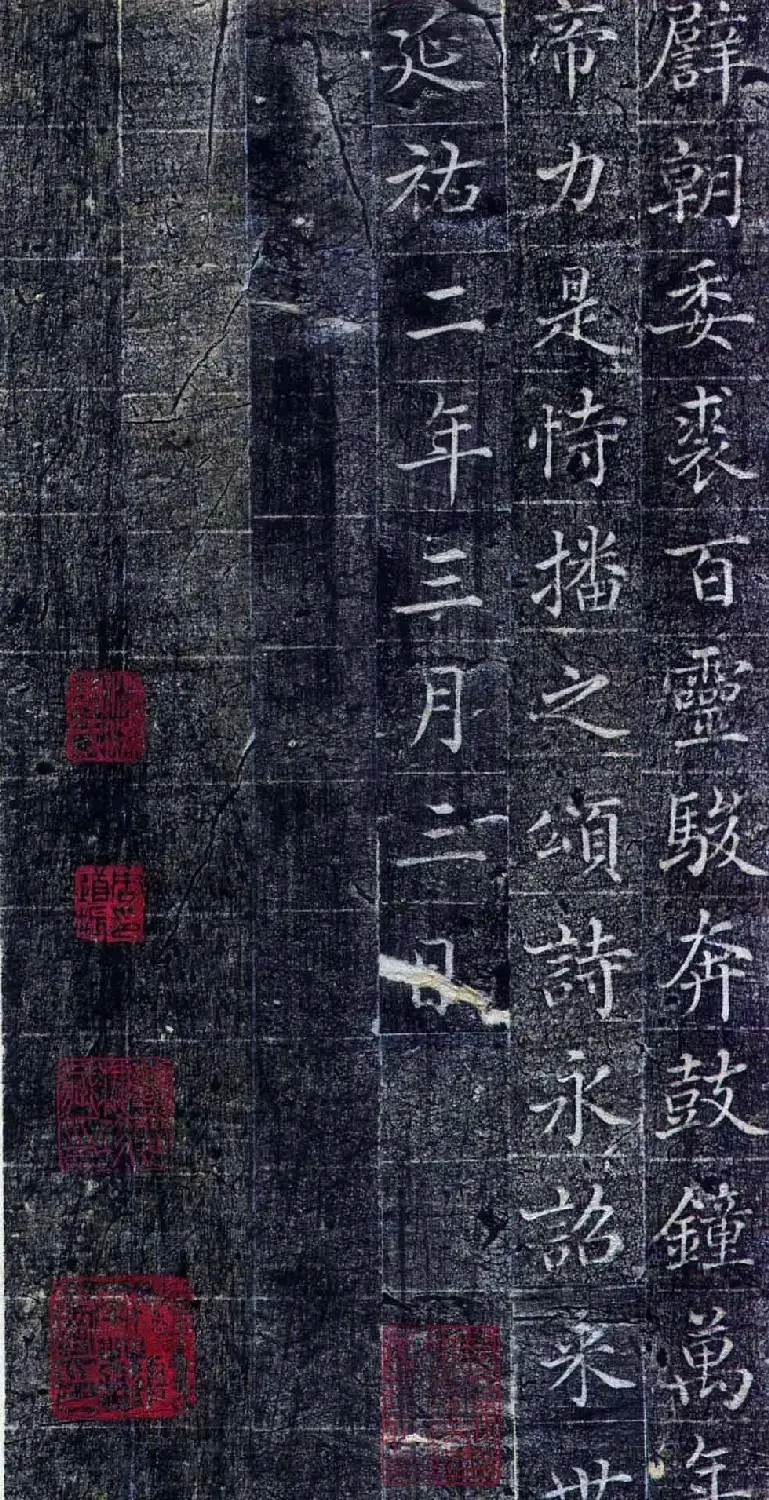 辟朝委裘百靈駿奔鼓鐘萬年
帝力是恃播之頌詩永詔来世
延祐二年三月三日